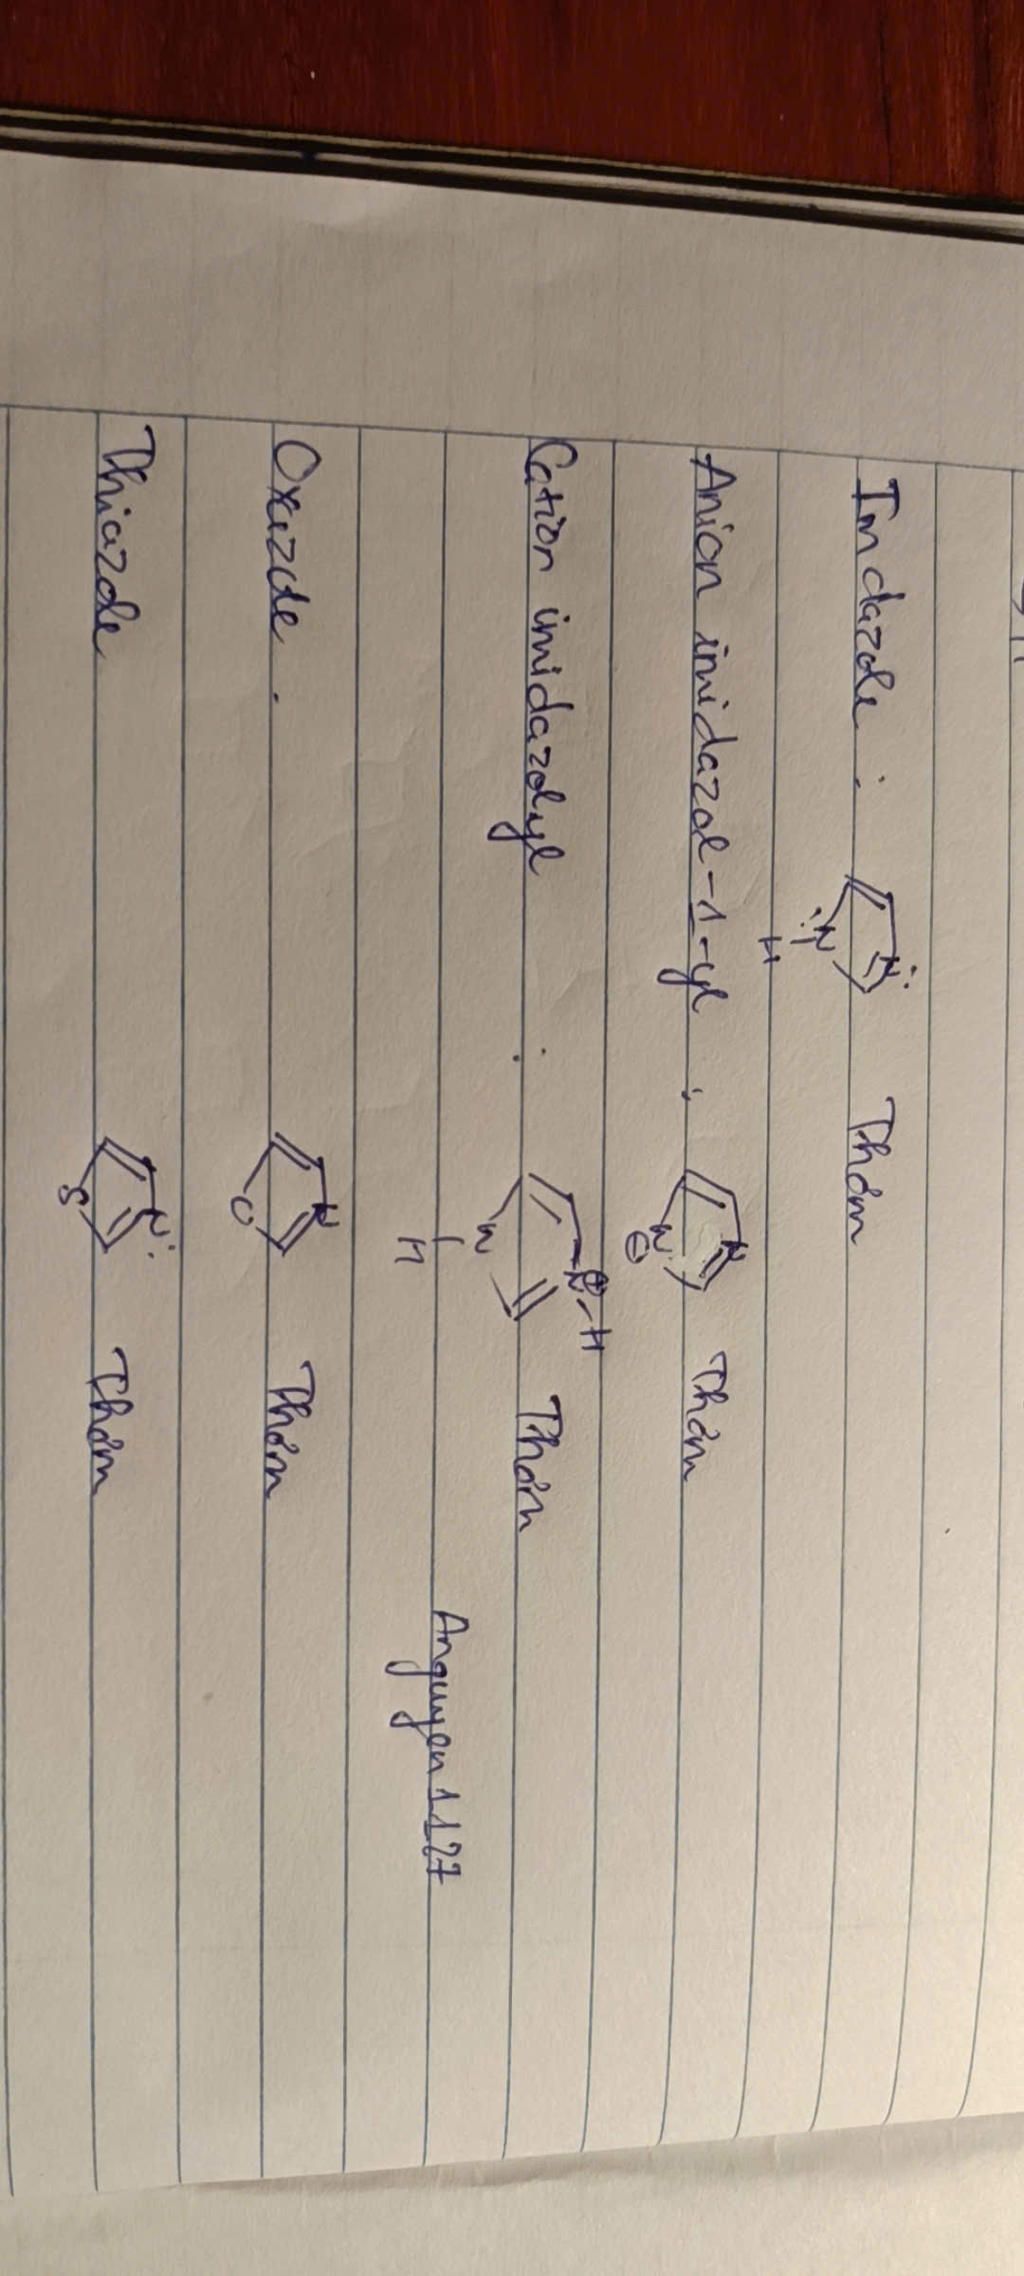 Imdazole : N: :N H Thơm
Anion imidazol-1-yl : N N ⊖ Thơm
Cation imidazolyl : N⊕-H N H Thơm
Anguyen1127
Oxazole : N O Thơm
Thiazole N: S Thơm